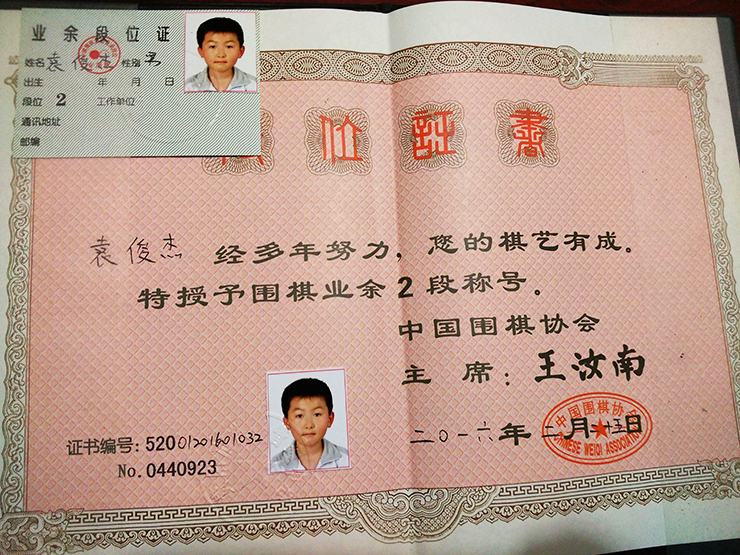 业余段位证
姓名 袁俊杰 性别 男
出生 年 月 日
段位 2 工作单位
通讯地址
邮编
位 証 書
袁俊杰 经多年努力，您的棋艺有成。
特授予围棋业余2段称号。
中国围棋协会
主席：王汝南
证书编号：52001201601032
No.0440923
二〇一六年二月二十五日
中国围棋协会
CHINESE WEIQI ASSOCIATION